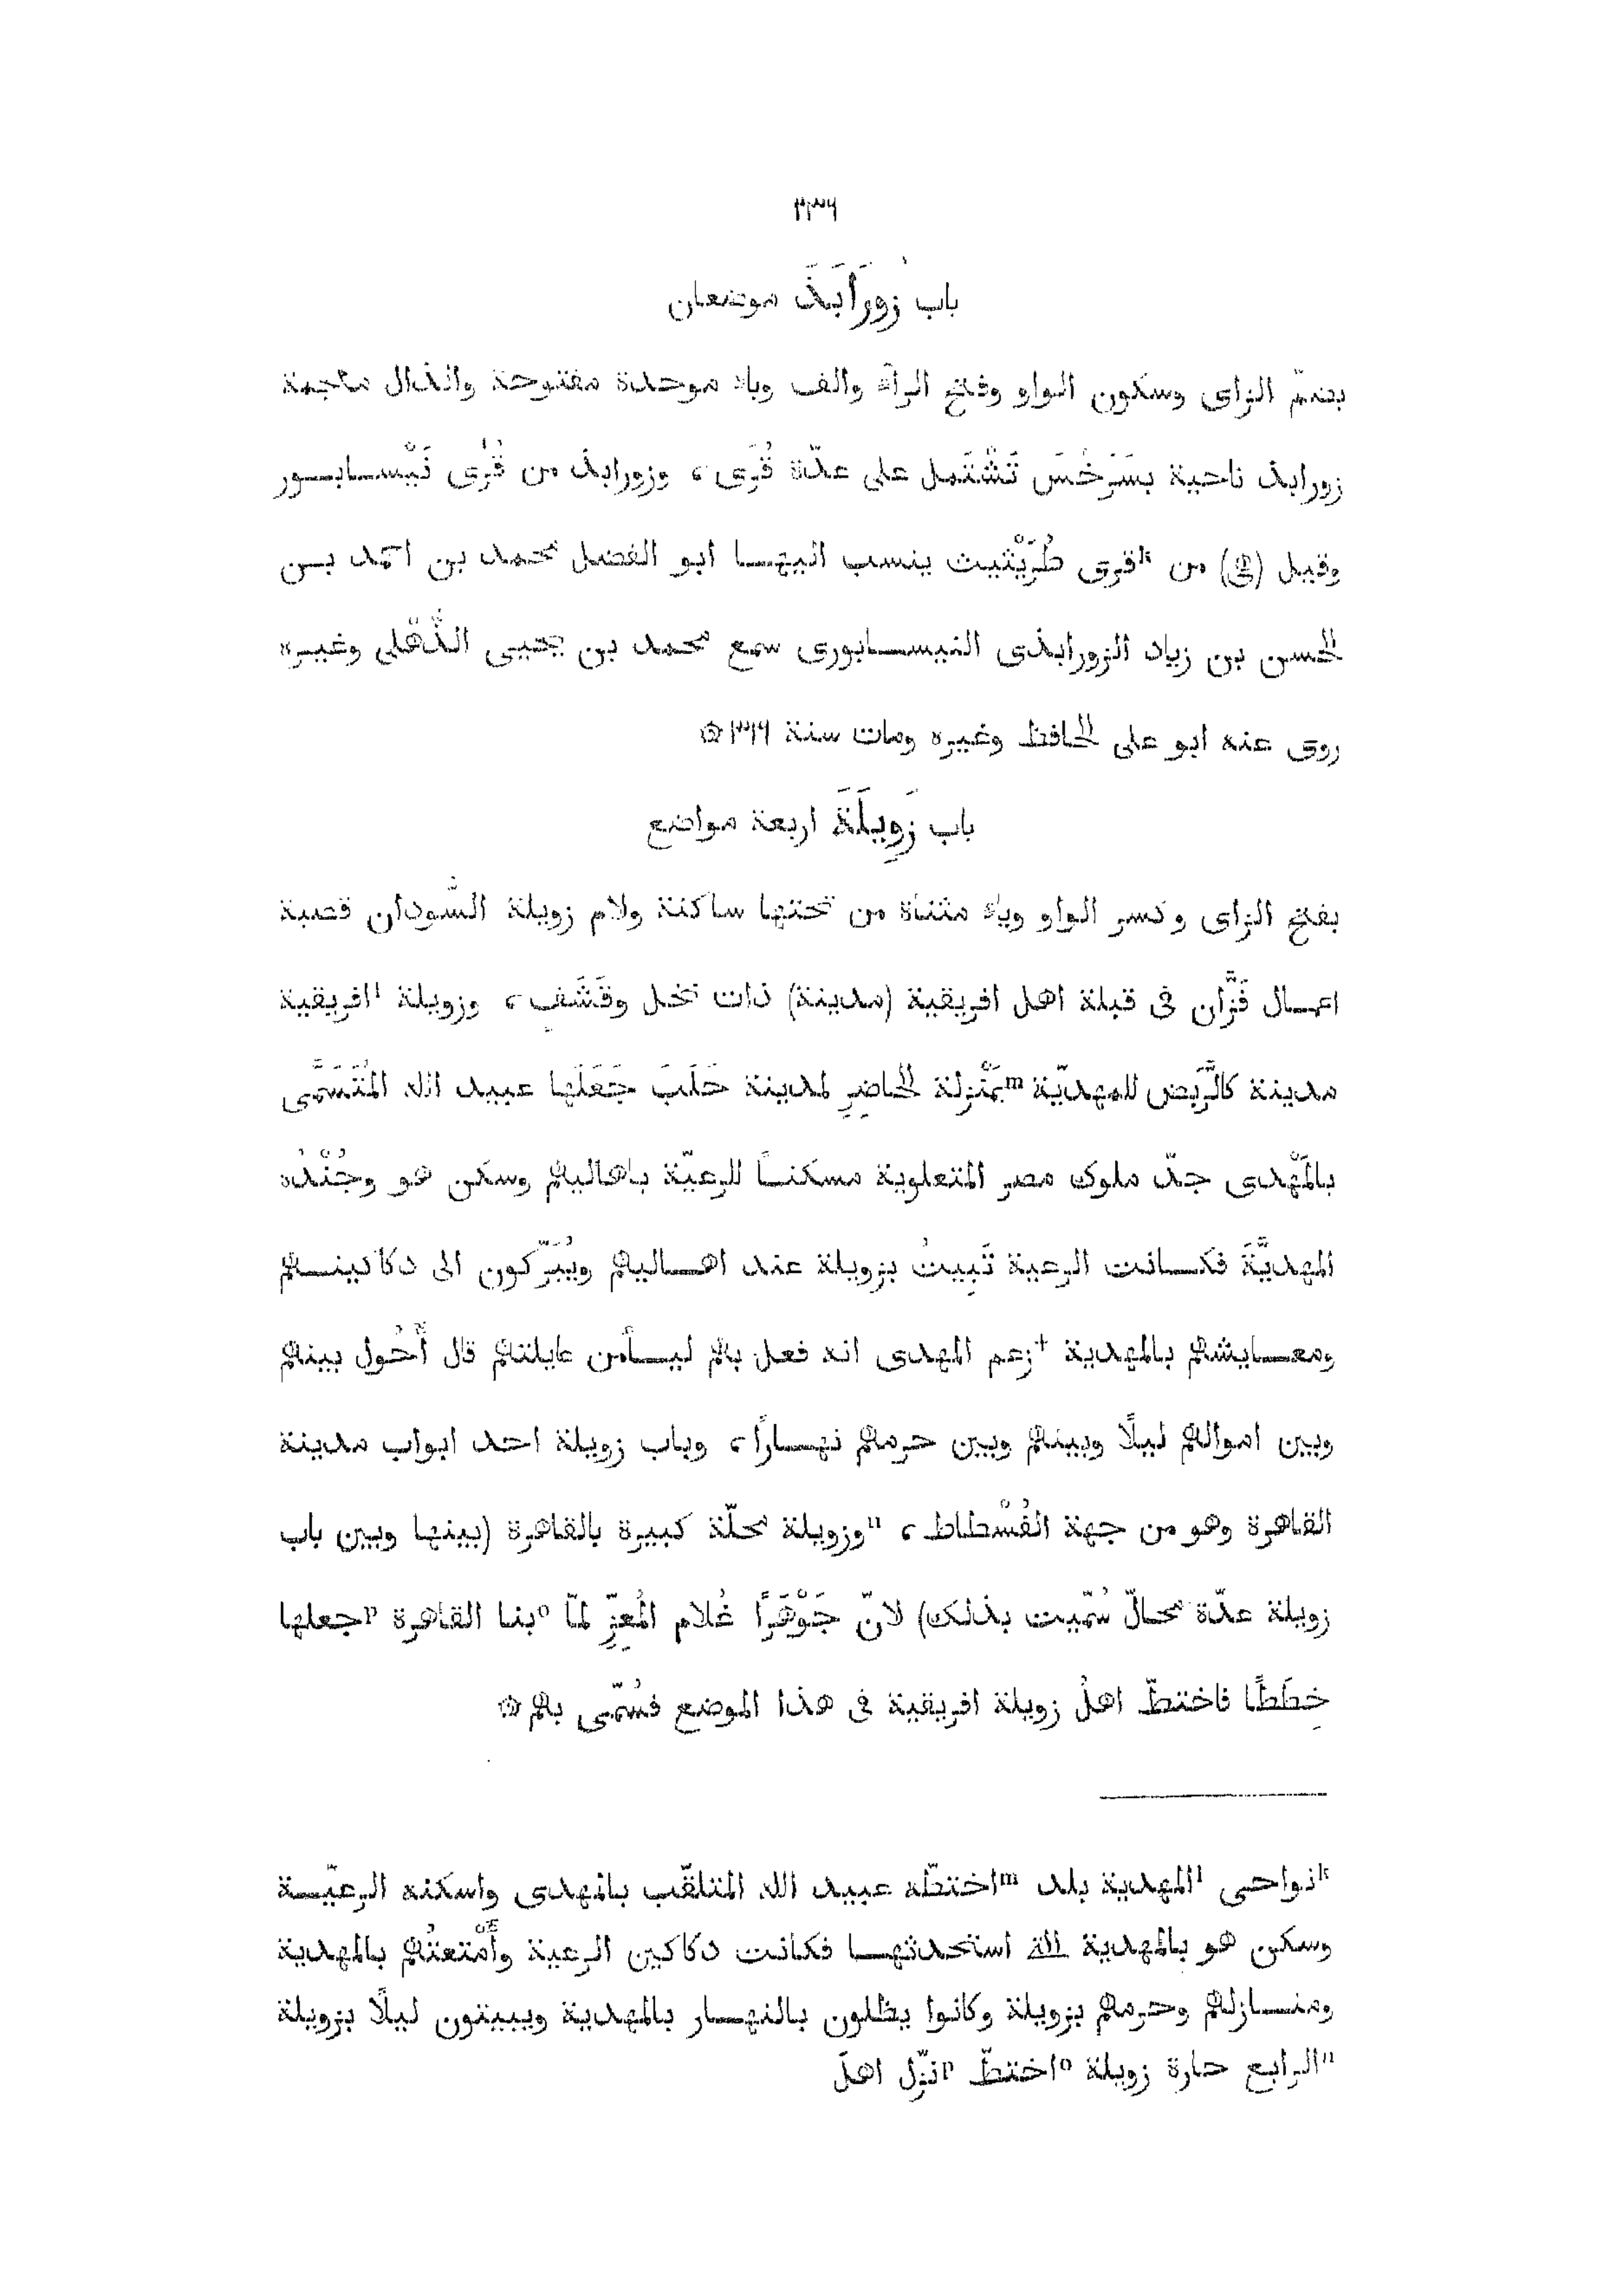 ٢٣٦
باب زُورَابَذَ موضعان
بضمّ الزاى وسكون الواو وفتح الرآء والف وباء موحدة مفتوحة والذال معجمة
زورابذ ناحية بسَرَخْسَ تَشْتَمل على عدّة قُرًى، وزورابذ من قُرَى نَيْسابور
وقيل (هى) من ᵏقرى طُرَيْثيث ينسب اليها ابو الفضل محمد بن احمد بن
الحسن بن زياد الزورابذى النيسابورى سمع محمد بن يحيى الذُّهْلى وغيره
روى عنه ابو على الحافظ وغيره ومات سنة ٣١٦ ۞
باب زَوِيلَةَ اربعة مواضع
بفتح الزاى وكسر الواو وياء مثناة من تحتها ساكنة ولام زويلة السُّودان قصبة
اعمال فَزَّان فى قبلة اهل افريقية (مدينة) ذات نخل وقَشَفٍ، وزويلة ˡافريقية
مدينة كالرَّبَض للمهديّة ᵐبمَنْزلة الحاضِرِ لمدينة حَلَبَ جَعَلَها عبيد الله المُتَسَمَّى
بالمَهْدى جدّ ملوك مصر المتعلوية مسكنًا للرعيّة باهاليهم وسكن هو وجُنْدُه
المهديَّةَ فكانت الرعية تَبِيتُ بزويلة عند اهاليهم ويُبَرّكون الى دكاكينهم
ومعايشهم بالمهدية +زعم المهدى انه فعل بهم ليأمن غايلتهم قال أَحُول بينهم
وبين اموالهم ليلًا وبينهم وبين حرمهم نهارًا، وباب زويلة احد ابواب مدينة
القاهرة وهو من جهة الفُسْطاط، ⁿوزويلة محلّة كبيرة بالقاهرة (بينها وبين باب
زويلة عدّة محالّ سُمّيت بذلك) لانّ جَوْهَرًا غُلام المُعِزّ لمّا ᵒبنا القاهرة ᵖجعلها
خِطَطًا فاختطّ اهلُ زويلة افريقية فى هذا الموضع فسُمّى بهم ۞
ᵏنواحى ˡالمهدية بلد ᵐاختطّه عبيد الله المتلقّب بالمهدى واسكنه الرعيّة
وسكن هو بالمهدية الة استحدثها فكانت دكاكين الرعية وأَمْتعتُهم بالمهدية
ومنازلهم وحرمهم بزويلة وكانوا يظلون بالنهار بالمهدية ويبيتون ليلًا بزويلة
ⁿالرابع حارة زويلة ᵒاختطّ ᵖنزّل اهلَ